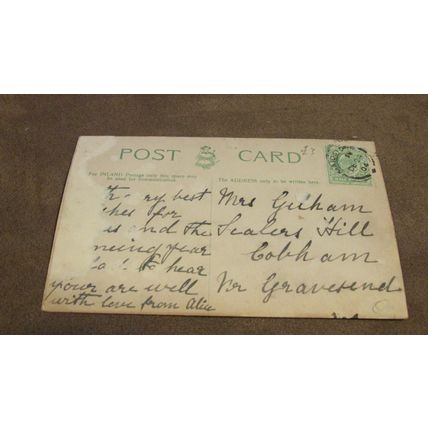 POST CARD
For INLAND Postage only this space may
be used for communication.
The ADDRESS only to be written here.
£3
very best
for
and the
year
to hear
your are well
with love from Alice
Mrs Gilham
Sealers Hill
Cobham
Nr Gravesend